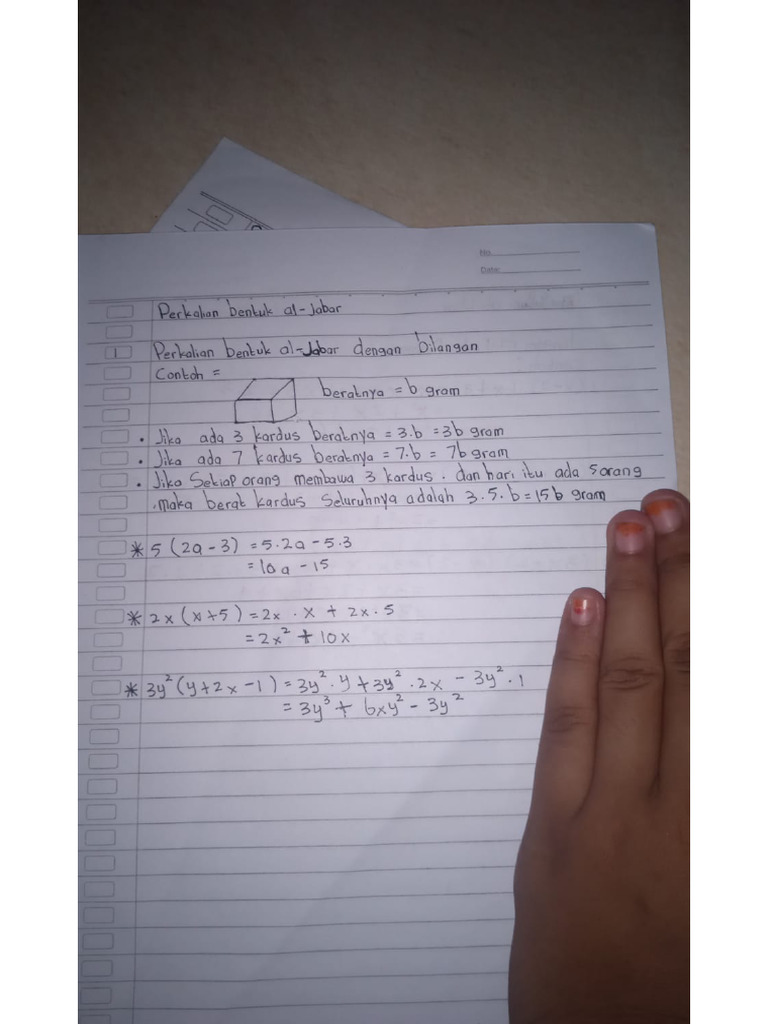 No.
Date:
Perkalian bentuk al-jabar
1 Perkalian bentuk al-Jabar dengan bilangan
Contoh =
beratnya = b gram
• Jika ada 3 kardus beratnya = 3.b = 3b gram
• Jika ada 7 kardus beratnya = 7.b = 7b gram
• Jika Setiap orang membawa 3 kardus. dan hari itu ada 5 orang
maka berat kardus seluruhnya adalah 3.5.b = 15b gram
* 5 (2a - 3) = 5.2a - 5.3
= 10a - 15
* 2x (x+5) = 2x . x + 2x . 5
= 2x² + 10x
* 3y² (y+2x-1) = 3y² . y + 3y² . 2x - 3y² . 1
= 3y³ + 6xy² - 3y²